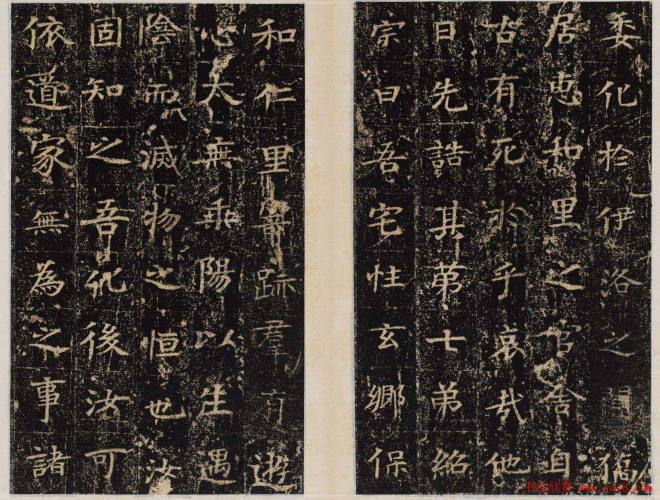 委化於伊洛之間僑
居惠和里之官舍自
古有死乎哀哉他
日先誥其第十弟紹
宗曰吾宅性玄鄉保
和仁里寄跡羣有遊
心大無乘陽以生遇
陰而滅物之恒也汝
固知之吾化後汝可
依道家無為之事諸